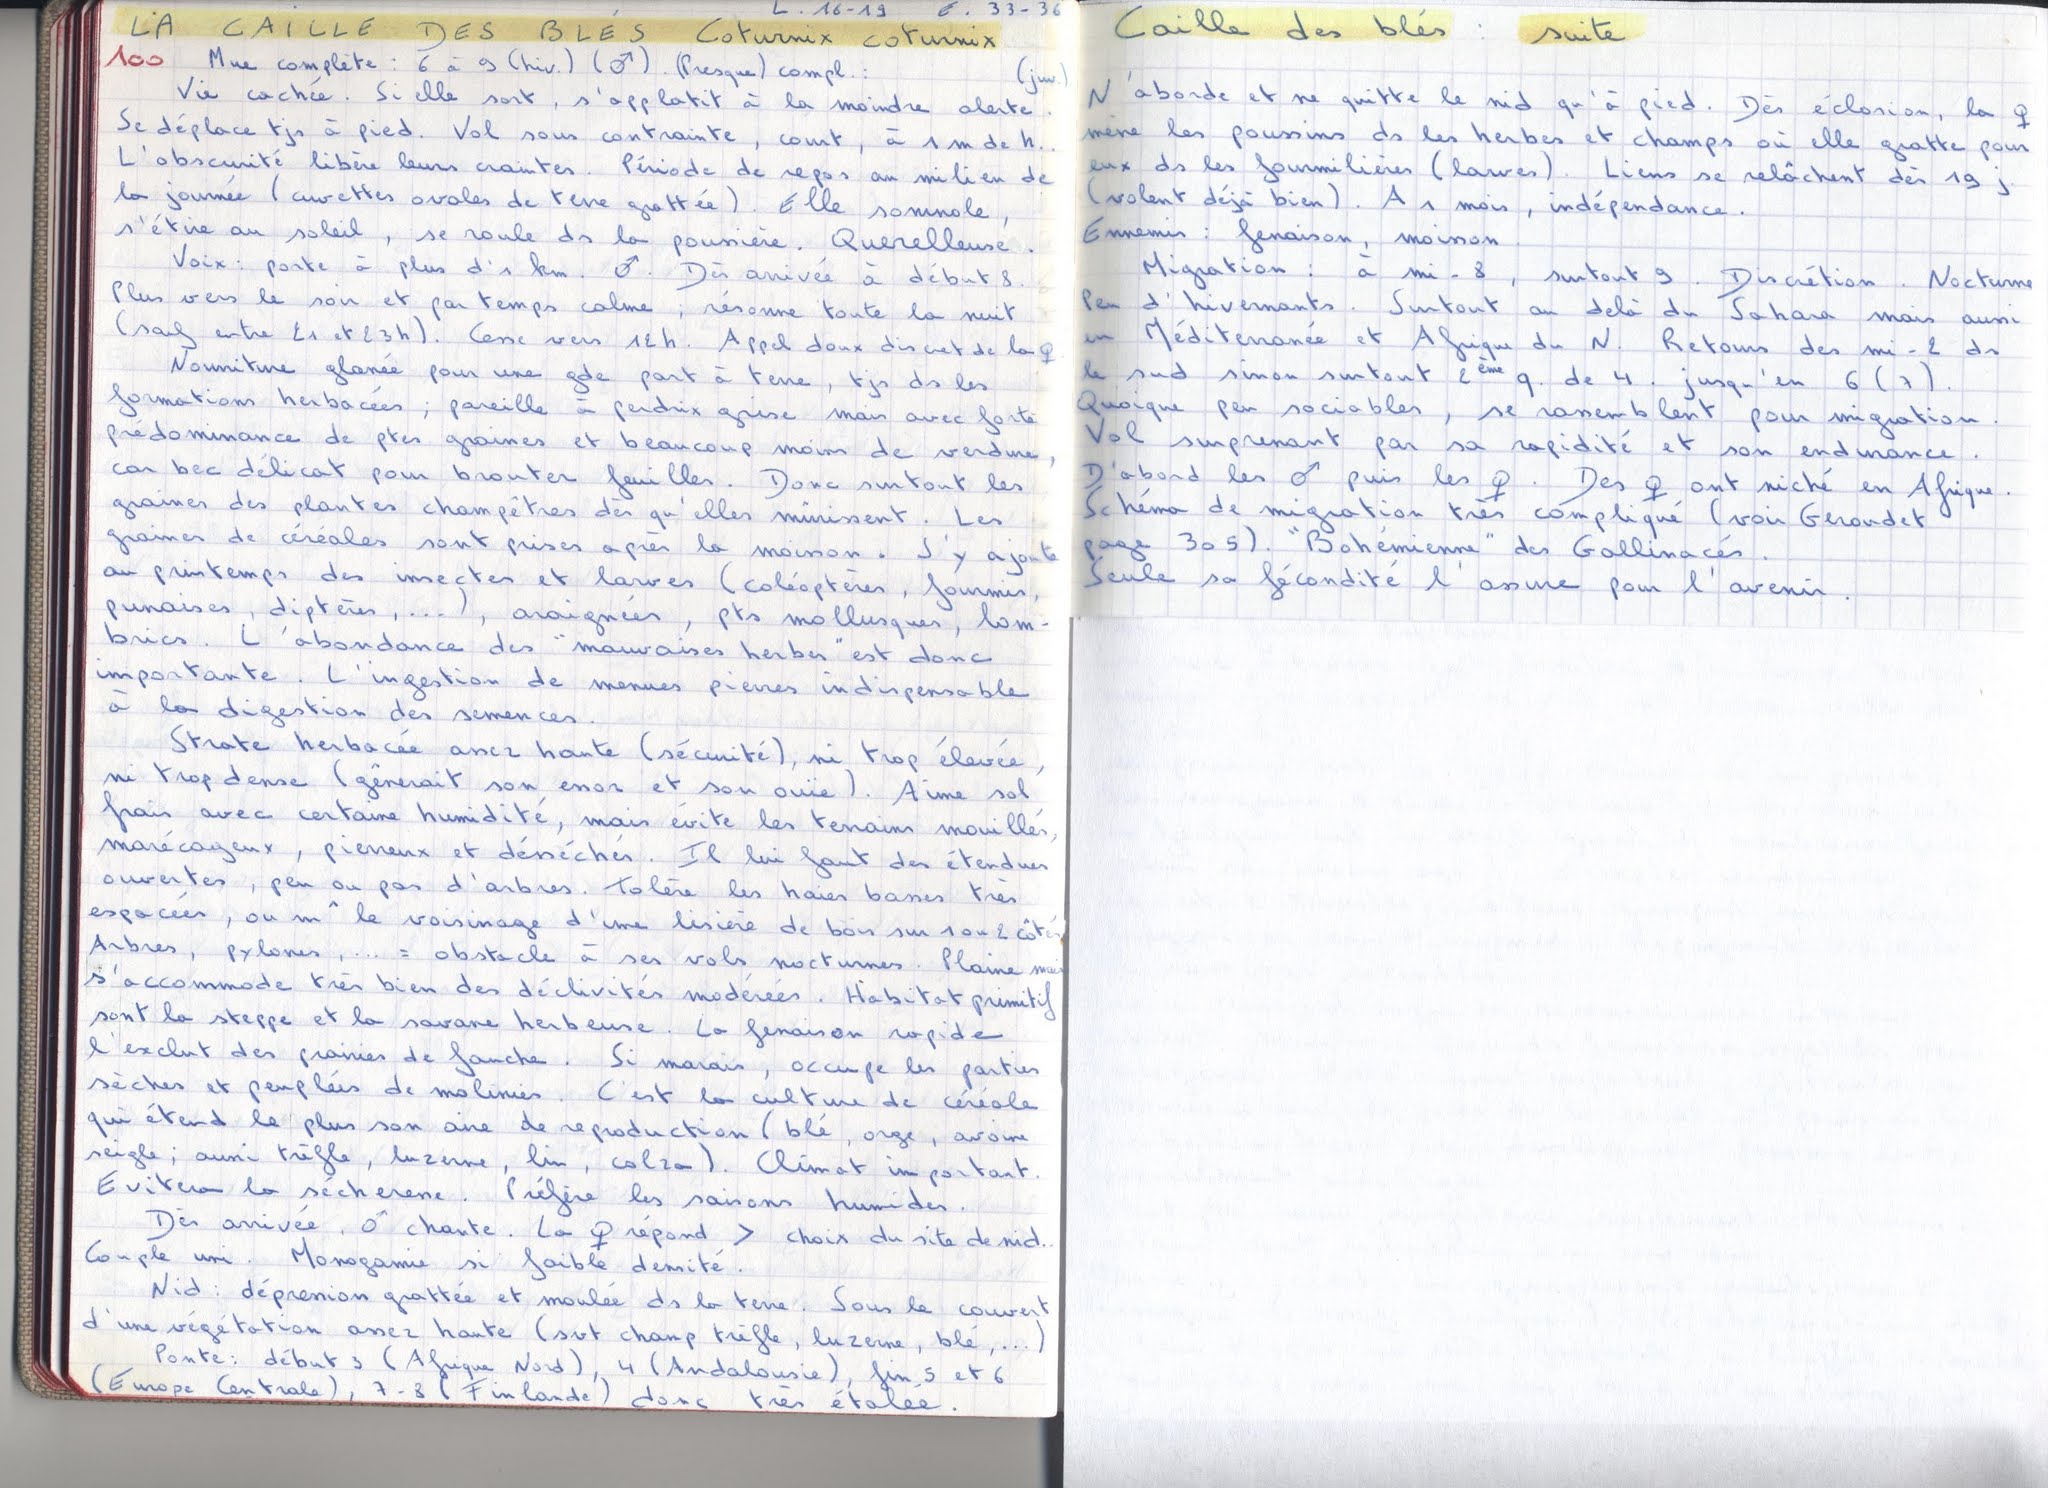 L. 16-19 E. 33-36
LA CAILLE DES BLÉS Coturnix coturnix
100 Mue complète : 6 à 9 (hiv.) (♂). (Presque) compl. : (juv.)
Vie cachée. Si elle sort, s'applatit à la moindre alerte.
Se déplace tjs à pied. Vol sous contrainte, court, à 1 m de h..
L'obscurité libère leurs craintes. Période de repos au milieu de
la journée (cuvettes ovales de terre grattée). Elle somnole,
s'étire au soleil, se roule ds la poussière. Querelleuse.
Voix : porte à plus d'1 km. ♂. Dès arrivée à début 8.
Plus vers le soir et par temps calme ; résonne toute la nuit
(sauf entre 21 et 23h). Cesse vers 12h. Appel doux discret de la ♀
Nourriture glanée pour une gde part à terre, tjs ds les
formations herbacées ; pareille à perdrix grise mais avec forte
prédominance de ptes graines et beaucoup moins de verdure,
car bec délicat pour brouter feuilles. Donc surtout les
graines des plantes champêtres dès qu'elles mûrissent. Les
graines de céréales sont prises après la moisson. S'y ajoute
au printemps des insectes et larves (coléoptères, fourmis,
punaises, diptères, ...), araignées, pts mollusques, lom-
brics. L'abondance des "mauvaises herbes" est donc
importante. L'ingestion de menues pierres indispensable
à la digestion des semences.
Strate herbacée assez haute (sécurité), ni trop élevée,
ni trop dense (gênerait son essor et son ouïe). Aime sol
frais avec certaine humidité, mais évite les terrains mouillés,
marécageux, pierreux et désséchés. Il lui faut des étendues
ouvertes, peu ou pas d'arbres. Tolère les haies basses très
espacées, ou m^ le voisinage d'une lisière de bois sur 1 ou 2 côtés
Arbres, pylones, ... = obstacle à ses vols nocturnes. Plaine mais
s'accommode très bien des déclivités modérées. Habitat primitif
sont la steppe et la savane herbeuse. La fenaison rapide
l'exclut des prairies de fauche. Si marais, occupe les parties
sèches et peuplées de molinies. C'est la culture de céréale
qui étend le plus son aire de reproduction (blé, orge, avoine
seigle ; aussi trèfle, luzerne, lin, colza). Climat important.
Evitera la sécheresse. Préfère les saisons humides.
Dès arrivée, ♂ chante. La ♀ répond > choix du site de nid..
Couple uni. Monogamie si faible densité.
Nid : dépression grattée et moulée ds la terre. Sous le couvert
d'une végétation assez haute (svt champ trèfle, luzerne, blé, ...)
Ponte : début 3 (Afrique Nord), 4 (Andalousie), fin 5 et 6
(Europe Centrale), 7-8 (Finlande) donc très étalée.
Caille des blés : suite
N'aborde et ne quitte le nid qu'à pied. Dès éclosion, la ♀
mène les poussins ds les herbes et champs où elle gratte pour
eux ds les fourmilières (larves). Liens se relâchent dès 19 j.
(volent déjà bien). A 1 mois, indépendance.
Ennemis : fenaison, moisson.
Migration : à mi-8, surtout 9. Discrétion. Nocturne
Peu d'hivernants. Surtout au delà du Sahara mais aussi
en Méditerranée et Afrique du N. Retours dès mi-2 ds
le sud sinon surtout 2ème q. de 4. jusqu'en 6 (7).
Quoique peu sociables, se rassemblent pour migration.
Vol surprenant par sa rapidité et son endurance.
D'abord les ♂ puis les ♀. Des ♀ ont niché en Afrique.
Schéma de migration très compliqué (voir Geroudet
page 305). "Bohémienne" des Gallinacés.
Seule sa fécondité l'assure pour l'avenir.